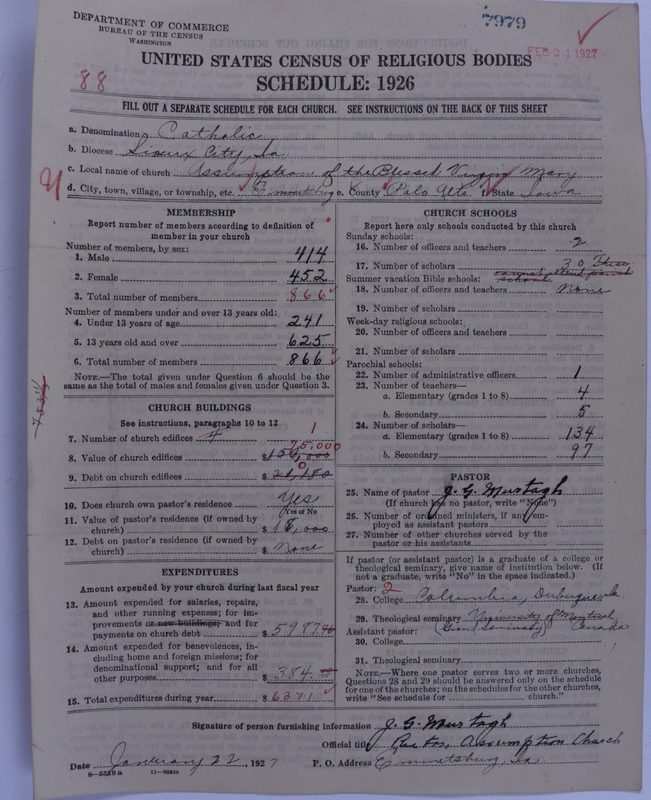 DEPARTMENT OF COMMERCE
BUREAU OF THE CENSUS
WASHINGTON
7979
FEB 21 1927
UNITED STATES CENSUS OF RELIGIOUS BODIES
88
SCHEDULE: 1926
FILL OUT A SEPARATE SCHEDULE FOR EACH CHURCH. SEE INSTRUCTIONS ON THE BACK OF THIS SHEET
a. Denomination Catholic
b. Diocese Sioux City, Ia
c. Local name of church Assumption of the Blessed Virgin Mary
d. City, town, village, or township, etc. Emmetsburg e. County Palo Alto f. State Iowa
MEMBERSHIP
Report number of members according to definition of
member in your church
Number of members, by sex:
1. Male 414
2. Female 452
3. Total number of members 866
Number of members under and over 13 years old:
4. Under 13 years of age 241
5. 13 years old and over 625
6. Total number of members 866
NOTE.—The total given under Question 6 should be the
same as the total of males and females given under Question 3.
CHURCH BUILDINGS
See instructions, paragraphs 10 to 12
7. Number of church edifices 4 1
75,000
8. Value of church edifices $150,000
0
9. Debt on church edifices $21,180
10. Does church own pastor's residence? Yes
(Yes or No
11. Value of pastor's residence (if owned by
church) $18,000
12. Debt on pastor's residence (if owned by
church) $None
EXPENDITURES
Amount expended by your church during last fiscal year
13. Amount expended for salaries, repairs,
and other running expenses; for im-
provements or new buildings; and for
payments on church debt $5987
14. Amount expended for benevolences, in-
cluding home and foreign missions; for
denominational support; and for all
other purposes $384
15. Total expenditures during year $6371
CHURCH SCHOOLS
Report here only schools conducted by this church
Sunday schools:
16. Number of officers and teachers 2
17. Number of scholars 30 These
cannot attend parish
Summer vacation Bible schools: school
18. Number of officers and teachers None
19. Number of scholars
Week-day religious schools:
20. Number of officers and teachers
21. Number of scholars
Parochial schools:
22. Number of administrative officers 1
23. Number of teachers—
a. Elementary (grades 1 to 8) 4
b. Secondary 5
24. Number of scholars—
a. Elementary (grades 1 to 8) 134
b. Secondary 97
PASTOR
25. Name of pastor J. G. Murtagh
(If church has no pastor, write "None")
26. Number of ordained ministers, if any, em-
ployed as assistant pastors
27. Number of other churches served by the
pastor or his assistants
If pastor (or assistant pastor) is a graduate of a college or
theological seminary, give name of institution below. (If
not a graduate, write "No" in the space indicated.)
Pastor: 2
28. College Columbia, Dubuque Ia
29. Theological seminary University of Montreal
Assistant pastor: (Grand Seminary) Canada
30. College
31. Theological seminary
NOTE.—Where one pastor serves two or more churches,
Questions 28 and 29 should be answered only on the schedule
for one of the churches; on the schedules for the other churches,
write "See schedule for church."
Signature of person furnishing information J. G. Murtagh
Official title Pastor, Assumption Church
Date January 22, 1927 P. O. Address Emmetsburg, Ia.
8—5519a 11—9664